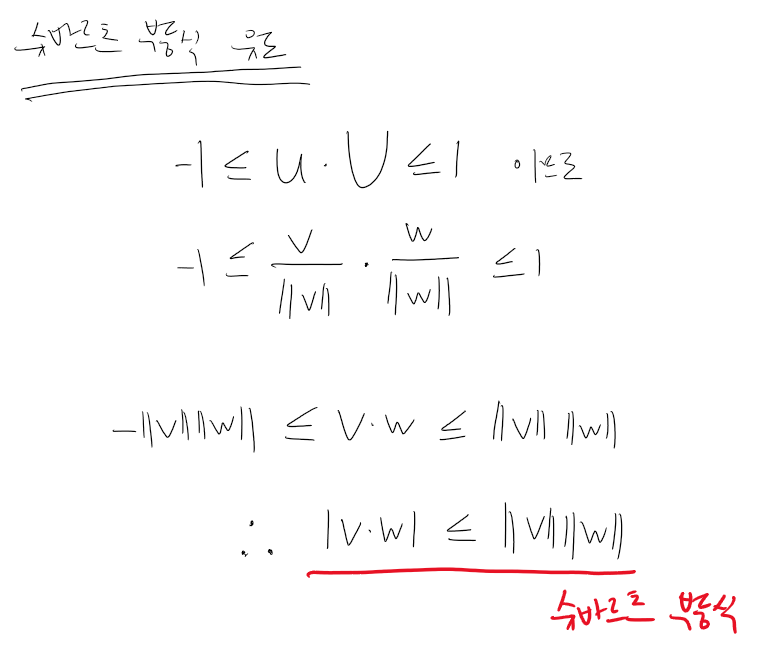 슈바르츠 부등식 유도
-1 ≤ u · U ≤ 1 이므로
-1 ≤ v/||v|| · w/||w|| ≤ 1
-||v|| ||w|| ≤ v·w ≤ ||v|| ||w||
∴ |v·w| ≤ ||v|| ||w||
슈바르츠 부등식